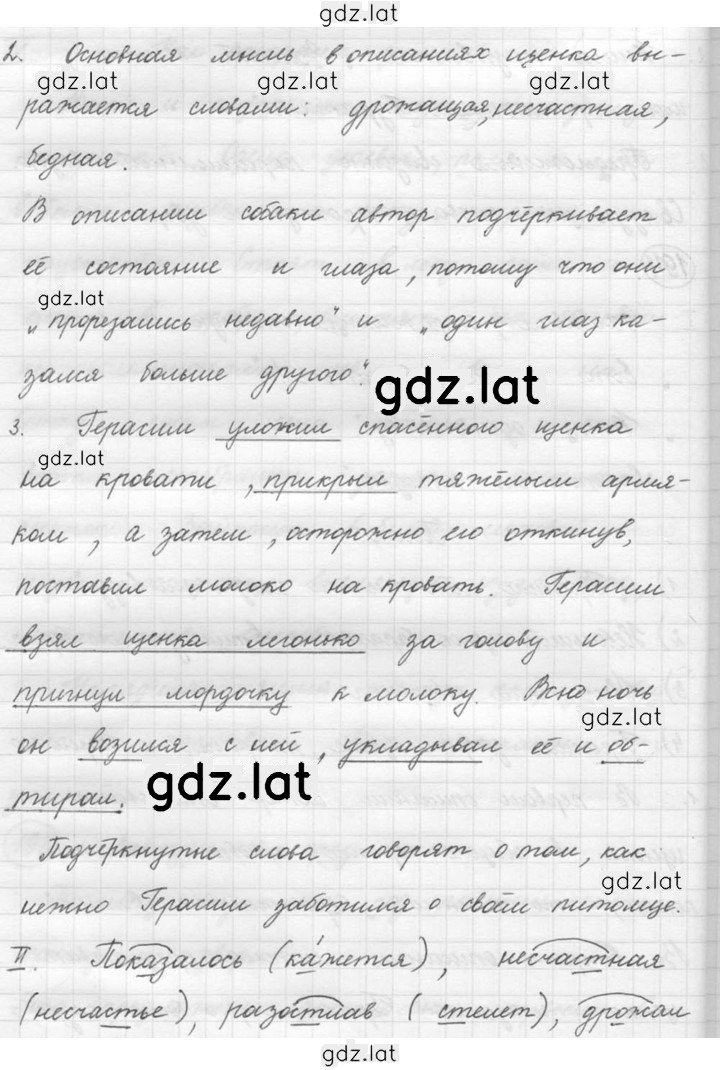 gdz.lat
2. Основная мысль в описаниях щенка вы-
gdz.lat gdz.lat gdz.lat
ражается словами: дрожащая, несчастная,
бедная.
В описании собаки автор подчёркивает
её состояние и глаза, потому что они
gdz.lat
„прорезались недавно" и „один глаз ка-
зался больше другого".
gdz.lat
3. Герасим уложил спасённого щенка
gdz.lat
на кровати, прикрыл тяжёлым армя-
ком, а затем, осторожно его откинув,
поставил молоко на кровать. Герасим
взял щенка легонько за голову и
пригнул мордочку к молоку. Всю ночь
gdz.lat
он возился с ней, укладывал её и об-
gdz.lat
тирал.
Подчёркнутые слова говорят о том, как
gdz.lat
нежно Герасим заботился о своём питомце.
II. Показалось (ка́жется), несчастная
(несчастье), разостлав (стелет), дрожал
gdz.lat